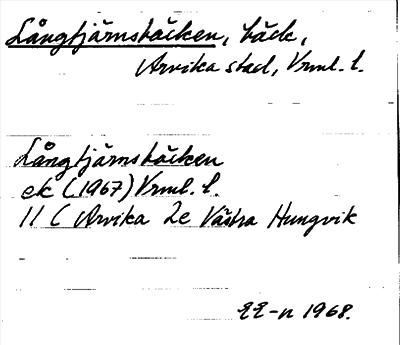 Långtjärnsbäcken, bäck,
Arvika stad, Vrml. l.
Långtjärnsbäcken
ek (1967) Vrml. l.
11 C Arvika 2e Västra Hungvik
1968.